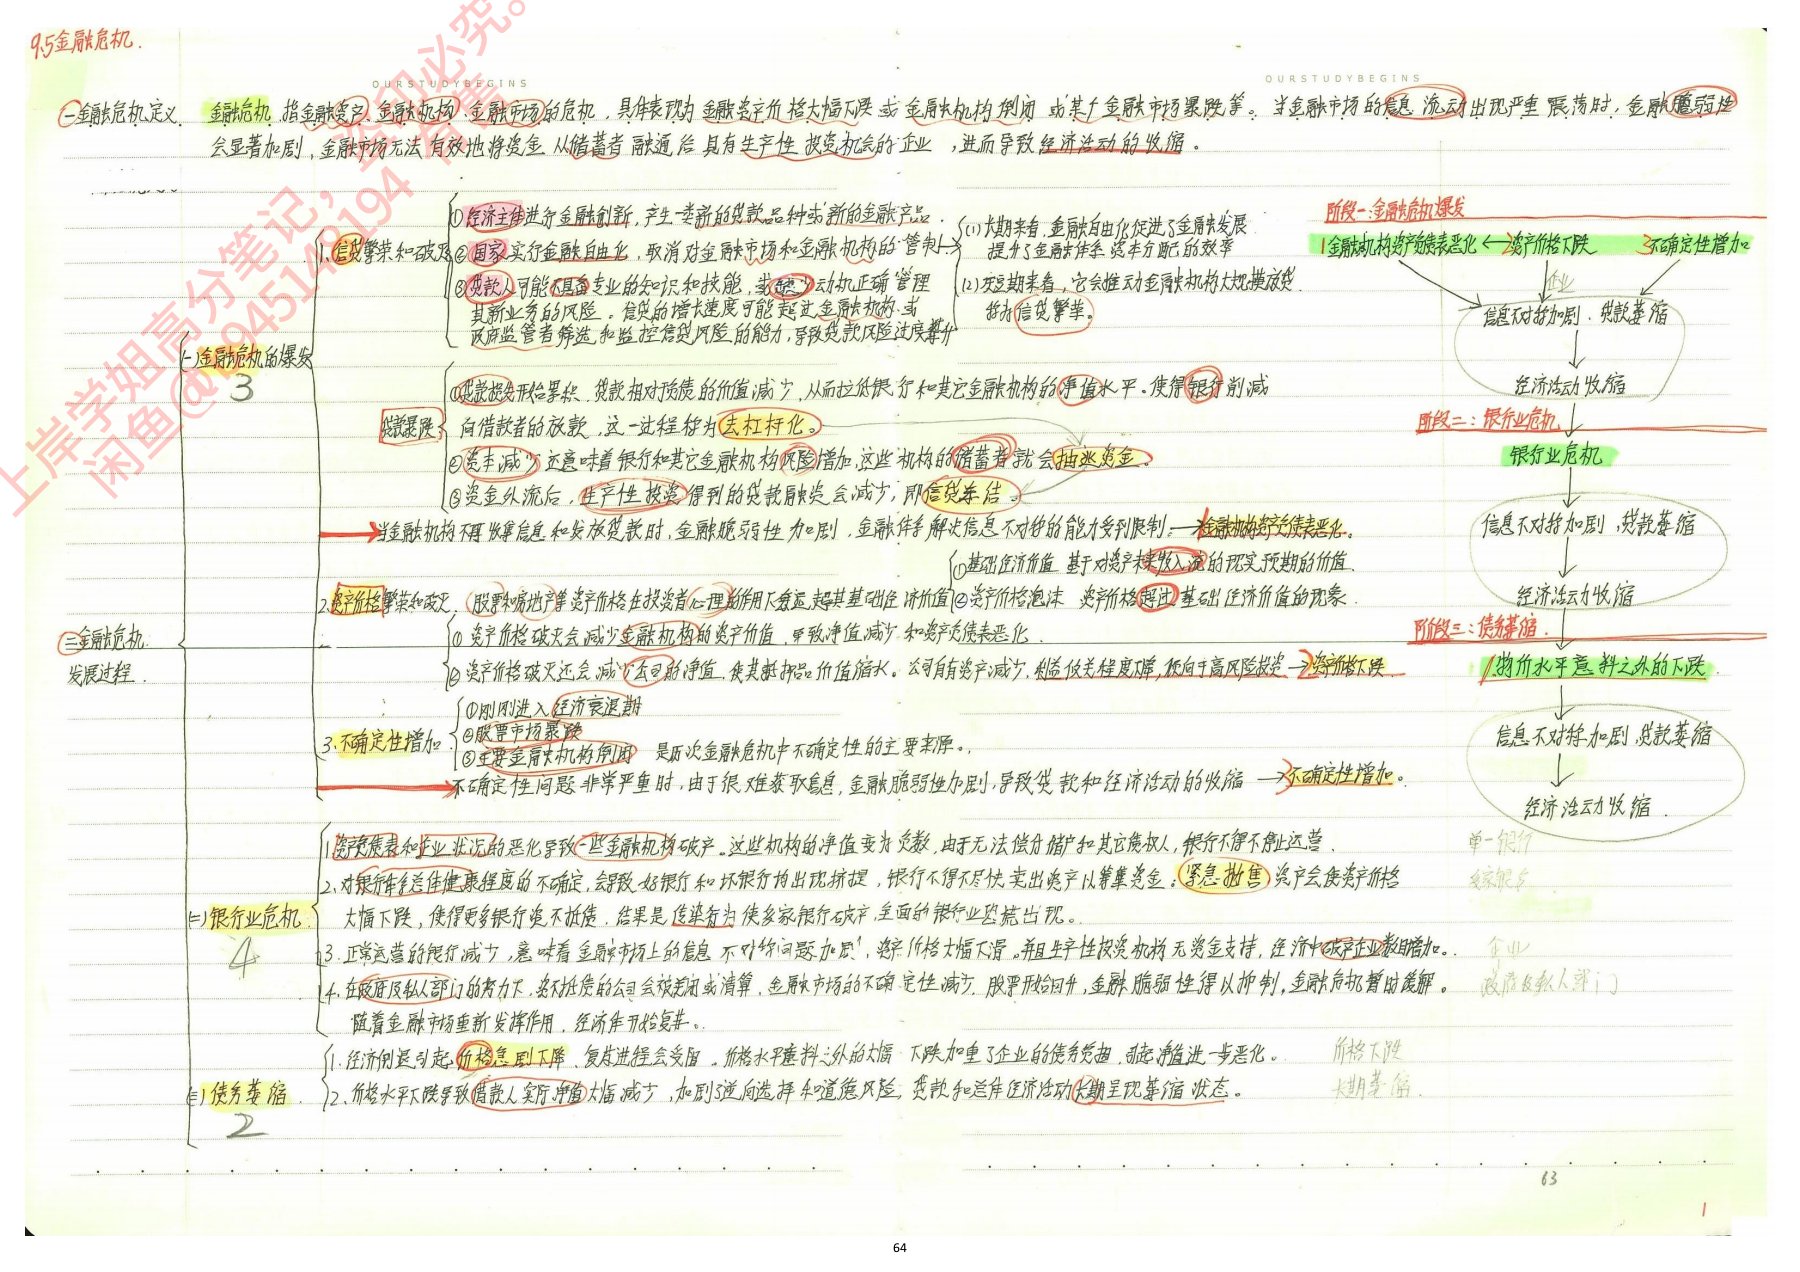 9.5金融危机.
OURSTUDYBEGINS
OURSTUDYBEGINS
一金融危机定义 金融危机 指金融资产、金融机构、金融市场的危机，具体表现为金融资产价格大幅下跌 或 金融机构倒闭 或某个金融市场暴跌等。当金融市场的信息流动出现严重震荡时，金融脆弱性
会显著加剧，金融市场无法有效地将资金从储蓄者融通给具有生产性投资机会的企业，进而导致经济活动的收缩。
二金融危机
发展过程.
(一)金融危机的爆发
3
1.信贷繁荣和破灭
①经济主体进行金融创新，产生一类新的贷款品种或新的金融产品.
②国家实行金融自由化，取消对金融市场和金融机构的管制
(1)长期来看，金融自由化促进了金融发展
提升了金融体系资本分配的效率
(2)短期来看，它会推动金融机构大规模放贷
称为信贷繁荣。
③贷款人可能不具备专业的知识和技能，或缺少动机正确管理
其新业务的风险。信贷的增长速度可能超过金融机构或
政府监管者筛选和监控信贷风险的能力，导致贷款风险过度攀升
贷款暴跌
①贷款损失开始累积，贷款相对预债的价值减少，从而拉低银行和其它金融机构的净值水平。使得银行削减
向借款者的放款，这一过程称为去杠杆化。
②资本减少还意味着银行和其它金融机构风险增加，这些机构的储蓄者就会抽逃资金。
③资金外流后，生产性投资得到的贷款融资会减少，即信贷冻结。
当金融机构不再收集信息和发放贷款时，金融脆弱性加剧，金融体系解决信息不对称的能力受到限制。→1金融机构资产负债表恶化。
2.资产价格繁荣和破灭. 股票和房地产等资产价格在投资者心理的作用下会远超其基础经济价值
①基础经济价值 基于对资产未来收入流的现实预期的价值.
②资产价格泡沫 资产价格超过基础经济价值的现象.
① 资产价格破灭会减少金融机构的资产价值，导致净值减少和资产负债表恶化.
② 资产价格破灭还会减少公司的净值，使其抵押品价值缩水。公司自有资产减少，利益攸关程度下降，倾向于高风险投资→2资产价格下跌
3.不确定性增加
①刚刚进入经济衰退期
②股票市场暴跌
③主要金融机构倒闭 是历次金融危机中不确定性的主要来源。
不确定性问题非常严重时，由于很难获取信息，金融脆弱性加剧，导致贷款和经济活动的收缩 →3不确定性增加。
(二)银行业危机
4
1.资产负债表和企业状况的恶化导致一些金融机构破产。这些机构的净值变为负数，由于无法偿付储户和其它债权人，银行不得不停止运营.
2.对银行体系总体健康程度的不确定，会导致好银行和坏银行均出现挤提，银行不得不尽快卖出资产以筹集资金；紧急抛售资产会使资产价格
大幅下跌，使得更多银行资不抵债，结果是传染行为使多家银行破产，全面的银行业恐慌出现。
3.正常运营的银行减少，意味着金融市场上的信息不对称问题加剧，资产价格大幅下滑。并且生产性投资机构无资金支持，经济中破产企业数目增加。
4.在政府及私人部门的努力下，资不抵债的公司会被关闭或清算，金融市场的不确定性减少，股票开始回升，金融脆弱性得以抑制，金融危机暂时缓解。
随着金融市场重新发挥作用，经济体开始复苏。
(三)债务萎缩
2
1.经济倒退引起价格急剧下降，复苏进程会受阻。价格水平意料之外的大幅下跌加重了企业的债务负担，引起净值进一步恶化。
2.价格水平下跌导致借款人实际净值大幅减少，加剧逆向选择和道德风险，贷款和总体经济活动长期呈现萎缩状态。
阶段一:金融危机爆发
1金融机构资产负债表恶化←2资产价格下跌 3不确定性增加
企业
信息不对称加剧．贷款萎缩
经济活动收缩
阶段二：银行业危机
银行业危机
信息不对称加剧，贷款萎缩
经济活动收缩
阶段三：债务萎缩
1物价水平意料之外的下跌
信息不对称加剧，贷款萎缩
经济活动收缩
单一银行
多家银行
企业
政府及私人部门
价格下跌
长期萎缩
63
1
64
上岸学姐高分笔记，盗印必究。